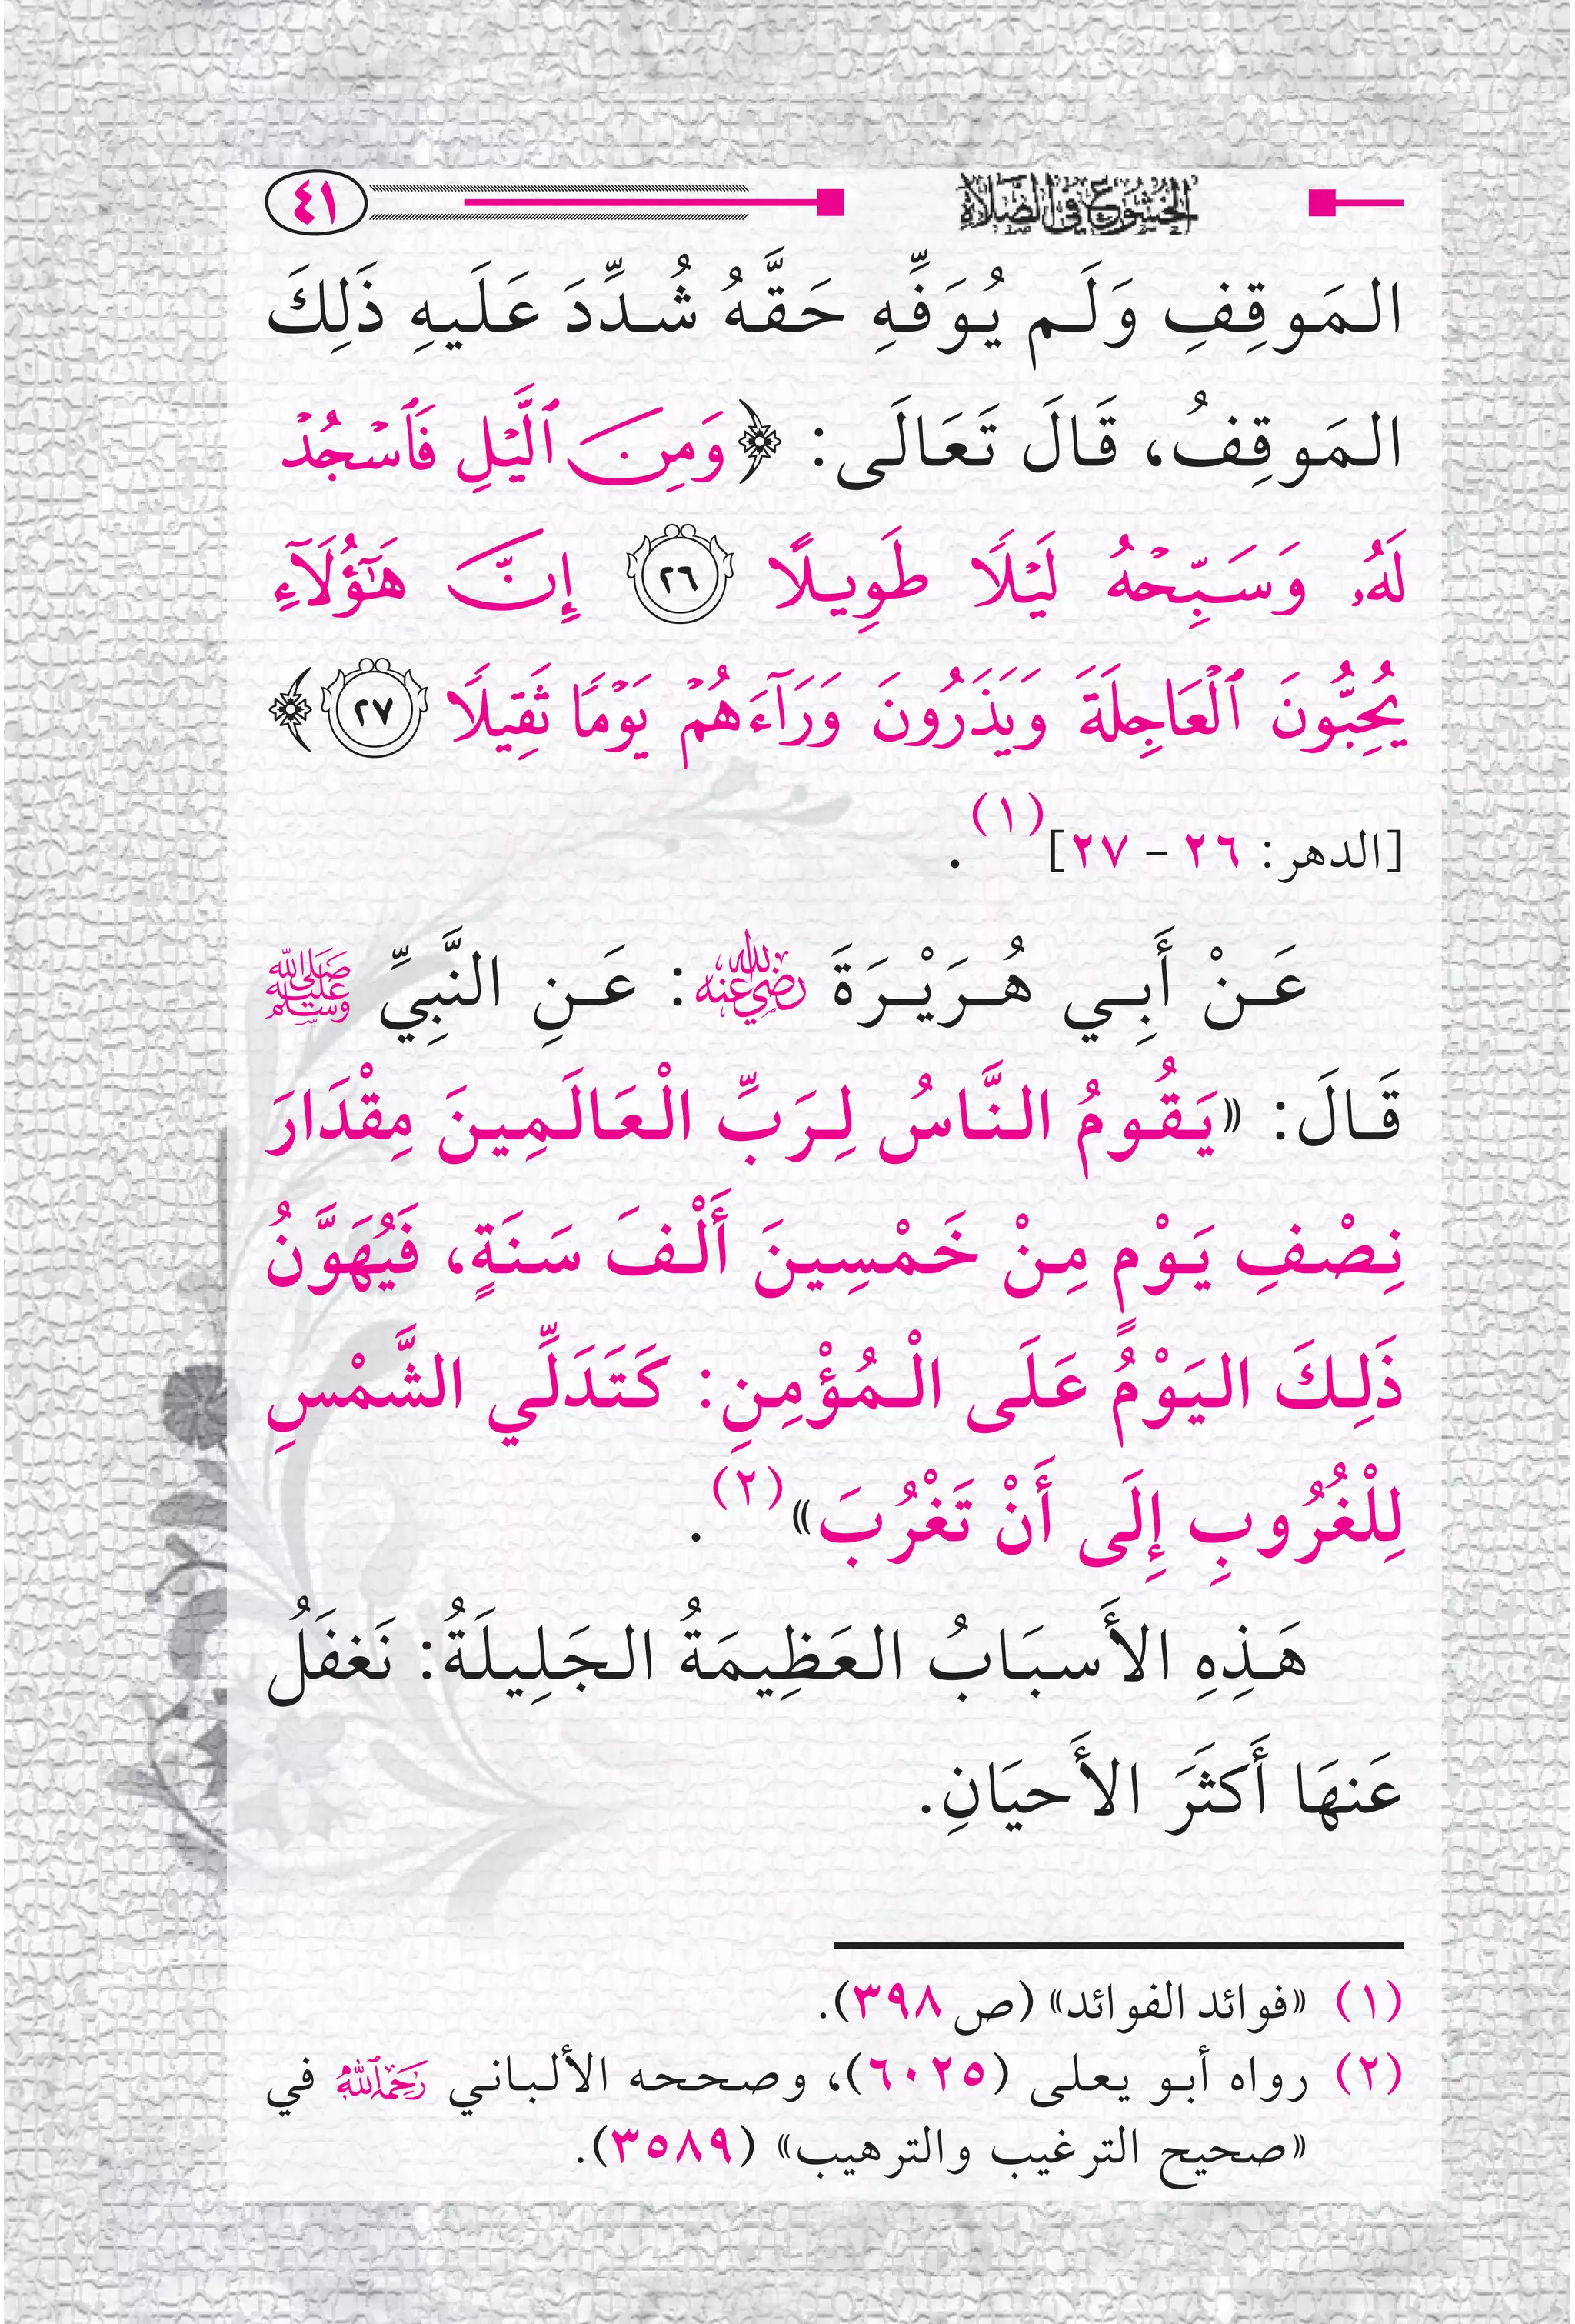 الخشوع في الصلاة ٤١
المَوقِفِ وَلَم يُوَفِّهِ حَقَّهُ شُدِّدَ عَلَيهِ ذَلِكَ
المَوقِفُ، قَالَ تَعَالَى: ﴿وَمِنَ ٱلَّيۡلِ فَٱسۡجُدۡ
لَهُۥ وَسَبِّحۡهُ لَيۡلًا طَوِيلًا ٢٦ إِنَّ هَٰٓؤُلَآءِ
يُحِبُّونَ ٱلۡعَاجِلَةَ وَيَذَرُونَ وَرَآءَهُمۡ يَوۡمًا ثَقِيلًا ٢٧﴾
[الدهر: ٢٦ - ٢٧](١).
عَنْ أَبِي هُرَيْرَةَ رضي الله عنه: عَنِ النَّبِيِّ ﷺ
قَالَ: «يَقُومُ النَّاسُ لِرَبِّ الْعَالَمِينَ مِقْدَارَ
نِصْفِ يَوْمٍ مِنْ خَمْسِينَ أَلْفَ سَنَةٍ، فَيُهَوَّنُ
ذَلِكَ اليَوْمُ عَلَى الْمُؤْمِنِ: كَتَدَلِّي الشَّمْسِ
لِلْغُرُوبِ إِلَى أَنْ تَغْرُبَ»(٢).
هَذِهِ الأَسبَابُ العَظِيمَةُ الجَلِيلَةُ: نَغفَلُ
عَنهَا أَكثَرَ الأَحيَانِ.
(١) «فوائد الفوائد» (ص ٣٩٨).
(٢) رواه أبو يعلى (٦٠٢٥)، وصححه الألباني رحمه الله في
«صحيح الترغيب والترهيب» (٣٥٨٩).